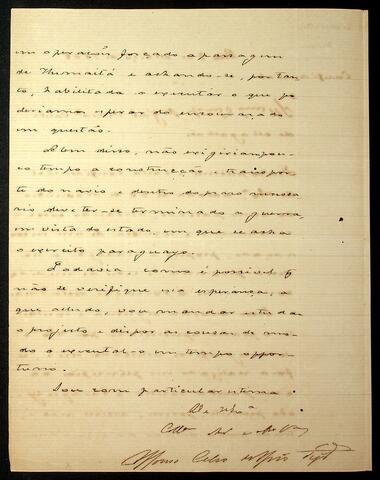 em operações forçado a passagem
de Humaitá e achando-se, portan
to, habilitada a executar o que po
deriamos esperar do encouraçado
em questão.
Alem disso, não exigiria pou-
co tempo a construcção e transpor
te do navio e dentro do prazo necessa
rio deve ter-se terminado a guerra,
em vista do estado, em que se acha
o exercito paraguayo.
Todavia como é possivel q
não se verifique essa esperança, a
que alludo, vou mandar estudar
o projecto e dispor as cousas de mo-
do a executal-o em tempo oppor-
tuno.
Sou com particular estima
De V. Exª
Affonso Celso de Assis Figdo